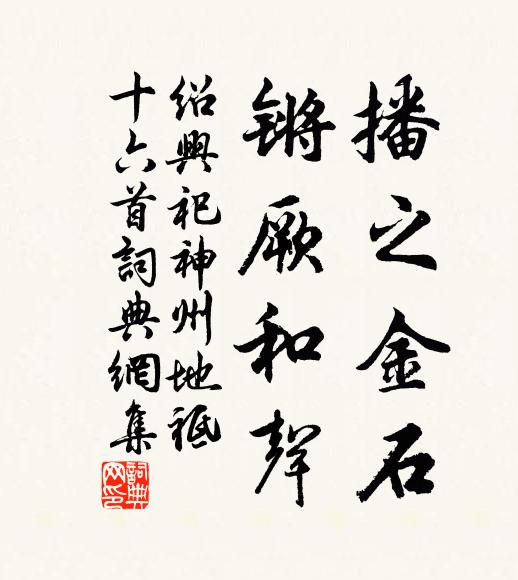 播之金石
锵厥和聲
紹興祀神州地祗
十六首詞典網集
詞典网印